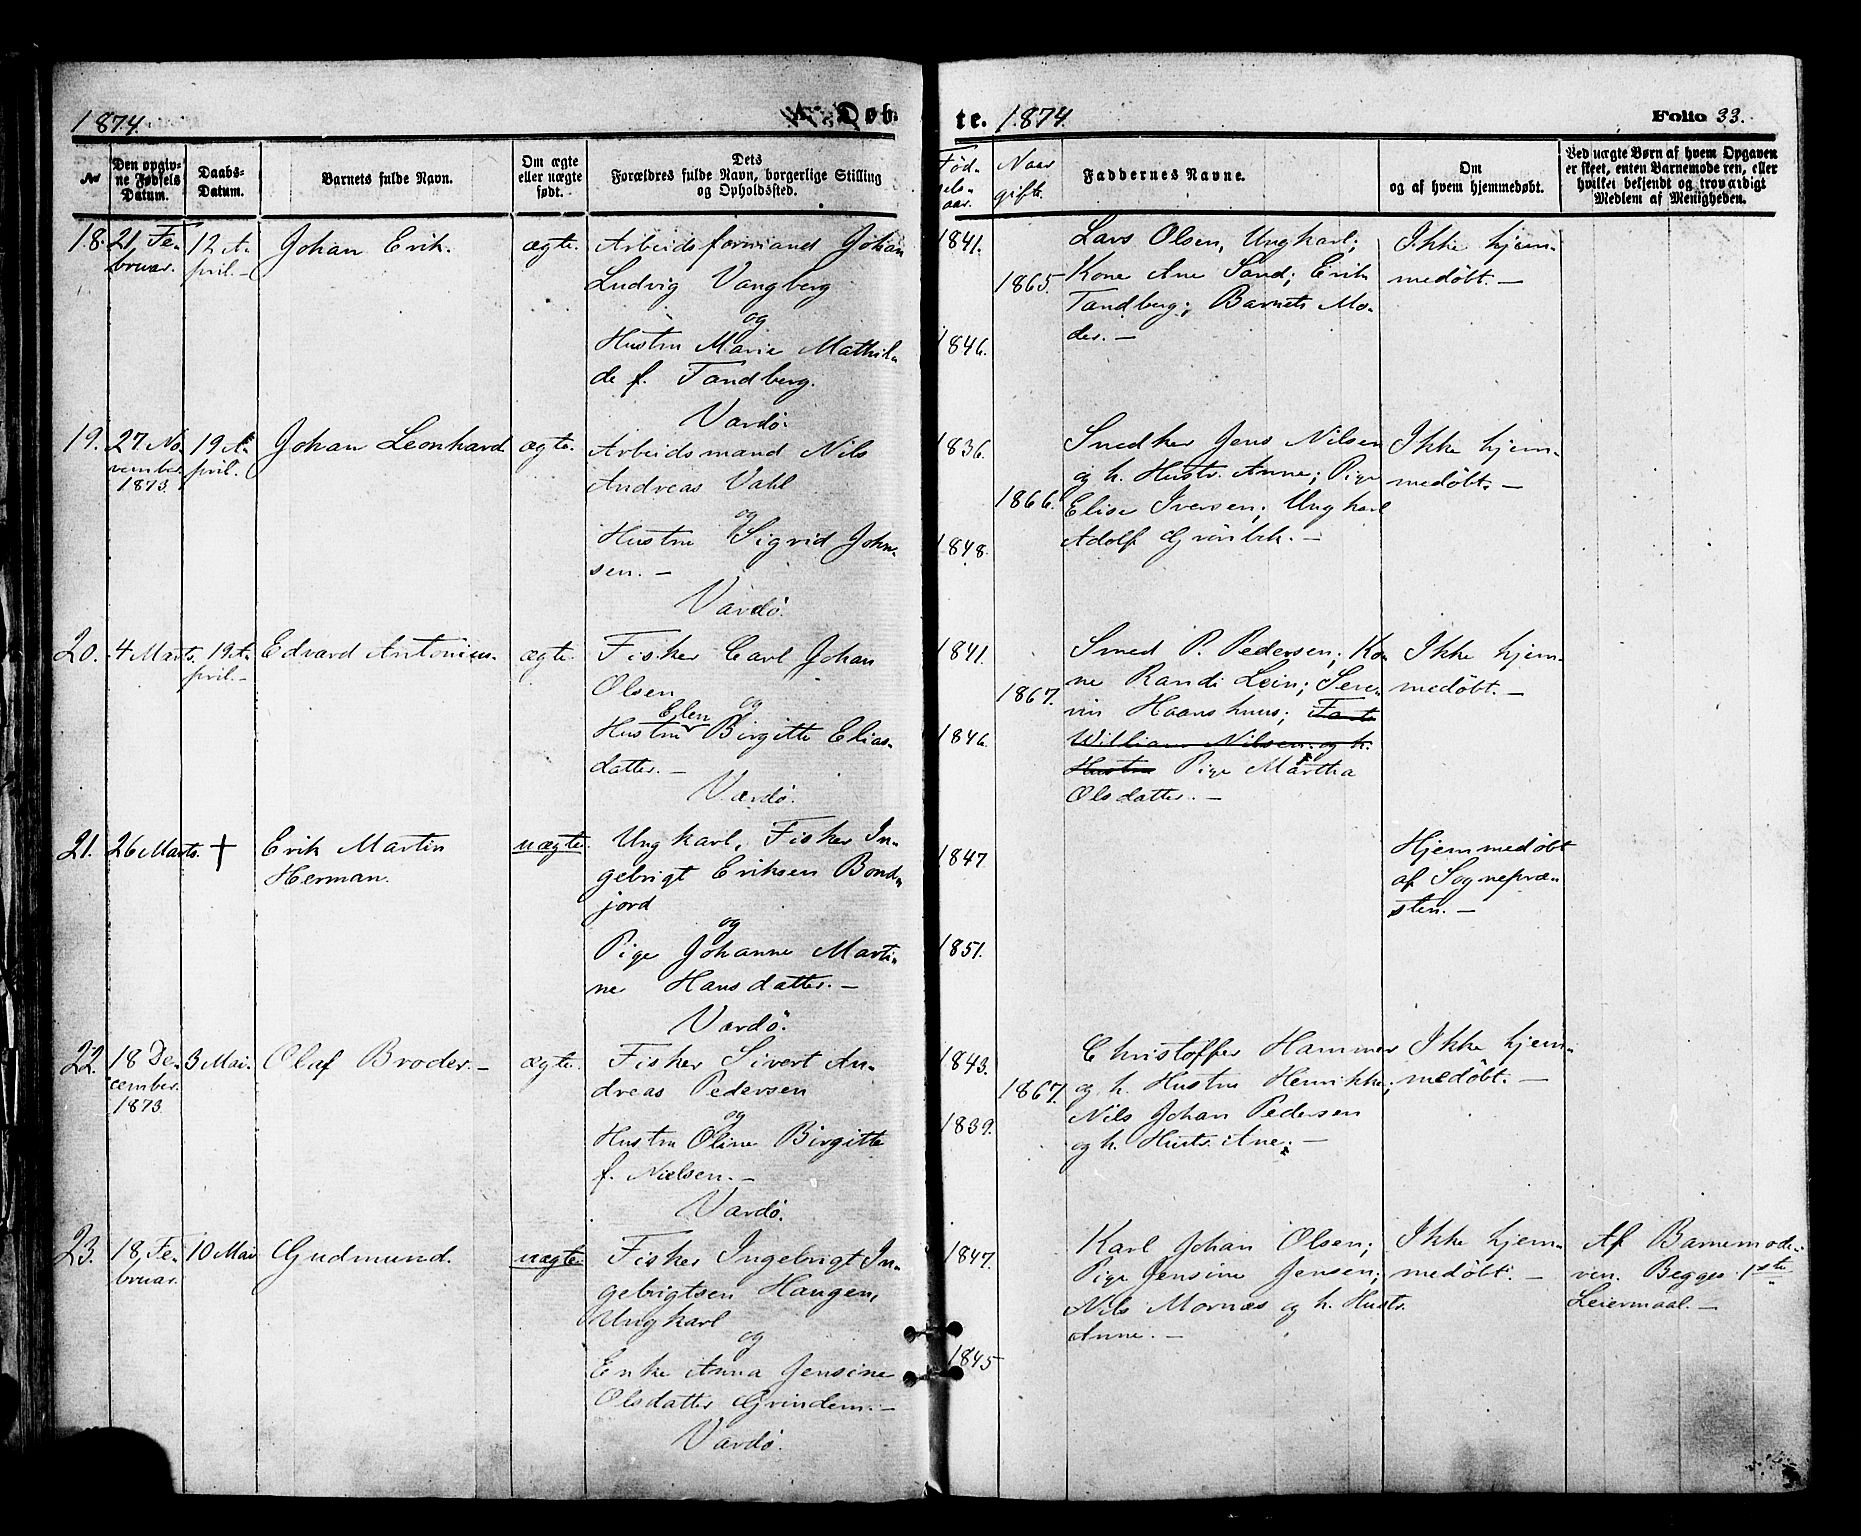 1874.
A. Døb-
te. 1874.
Folio 33.
No
Den opgiv-
ne Fødsels
Datum.
Daabs-
Datum.
Barnets fulde Navn.
Om ægte
eller uægte
født.
Dets
Forældres fulde Navn, borgerlige Stilling
og Opholdssted.
Fød-
sels-
aar.
Naar
gift.
Faddernes Navne.
Om
og af hvem hjemmedøbt.
Ved uægte Børn af hvem Opgaven
er skeet, enten Barnemoderen, eller
hvilket bekjendt og troværdigt
Medlem af Menigheden.
18.
21, Fe-
bruar.
12 A-
pril.-
Johan Erik.
ægte.
Arbeidsformand Johan
Ludvig Vangberg
og
Hustru Marie Mathil-
de f. Tandberg.
Vardø.
1841.
1865.
1846.
Lars Olsen, Ungkarl;
Kone Ane Sand; Erik
Tandberg; Barnets Mo-
der.-
Ikke hjem-
medøbt.-
19.
27 No-
vember
1873.
19 A-
pril.
Johan Leonhard
ægte.
Arbeidsmand Nils
Andreas Vahl
og
Hustru Sigrid John-
sen.-
Vardø.
1836.
1866.
1848.
Snedker Jens Nilsen
og h. Hustr. Anne; Pige
Elise Iversen; Ungkarl
Adolf Grönbek.-
Ikke hjem-
medøbt.-
20.
4 Marts.
19 A-
pril.-
Edvard Antonius.
ægte.
Fisker Carl Johan
Olsen
og
Hustru Elen Birgitte Elias-
datter.-
Vardø.
1841.
1867.
1846.
Smed P. Pedersen; Ko-
ne Randi Lein; Sere-
vin Haanshuus;
William Nilsen og h.
Hustru Pige Martha
Olsdatter.-
Ikke hjem-
medøbt.-
21.
26 Marts.
+
Erik Martin
Herman.
uægte.
Ungkarl, Fisker In-
gebrigt Eriksen Bond-
jord
og
Pige Johanne Marti-
ne Hansdatter.-
Vardø.
1847
1851.
Hjemmedøbt
af Sognepræ-
sten.-
22.
18 De-
cember.
1873.
3 Mai.
Oluf Broder.-
ægte.
Fisker Sivert An-
dreas Pedersen
og
Hustru Oline Birgitte
f. Nielsen.-
Vardø.
1843.
1867.
1839.
Christoffer Hammer
og h. Hustru Henrikke;
Nils Johan Pedersen
og h. Hustr. Ane.-
Ikke hjem-
medøbt.-
23.
18, Fe-
bruar.
10 Mai
Gudmund.
uægte.
Fisker Ingebrigt In-
gebrigtsen Haugen,
Ungkarl
og
Enke Anna Jensine
Olsdatter Grindem.-
Vardø.
1847.
1845
Karl Johan Olsen;
Pige Jensine Jensen;
Nils Mornæs og h. Hustr.
Anne.-
Ikke hjem-
medøbt.-
Af Barnemode-
ren. Begges 1ste
Leiermaal.-